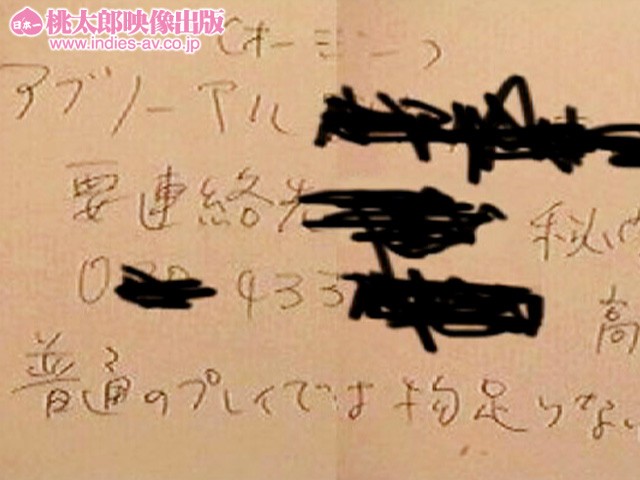 日本一 桃太郎映像出版
www.indies-av.co.jp
(オージー)
アブノーマル
要連絡先
秘
0 433
高
普通のプレイでは物足りない